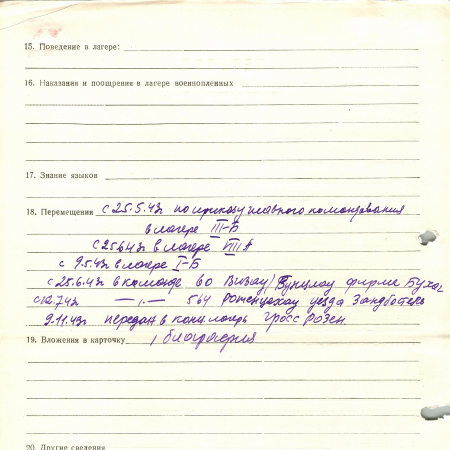 15. Поведение в лагере:
16. Наказания и поощрения в лагере военнопленных
17. Знание языков
18. Перемещения с 25.5.43г по приказу главного командования
в лагере III-Б
с 25.6.43г в лагере VIII А
с 9.5.43г в лагере I-Б
с 25.6.43г в команде во Визау/Бунцлау фирме Бухал
564 уезда
9.11.43г передан в концлагерь Гросс Розен
19. Вложения в карточку 1 биография
20. Другие сведения